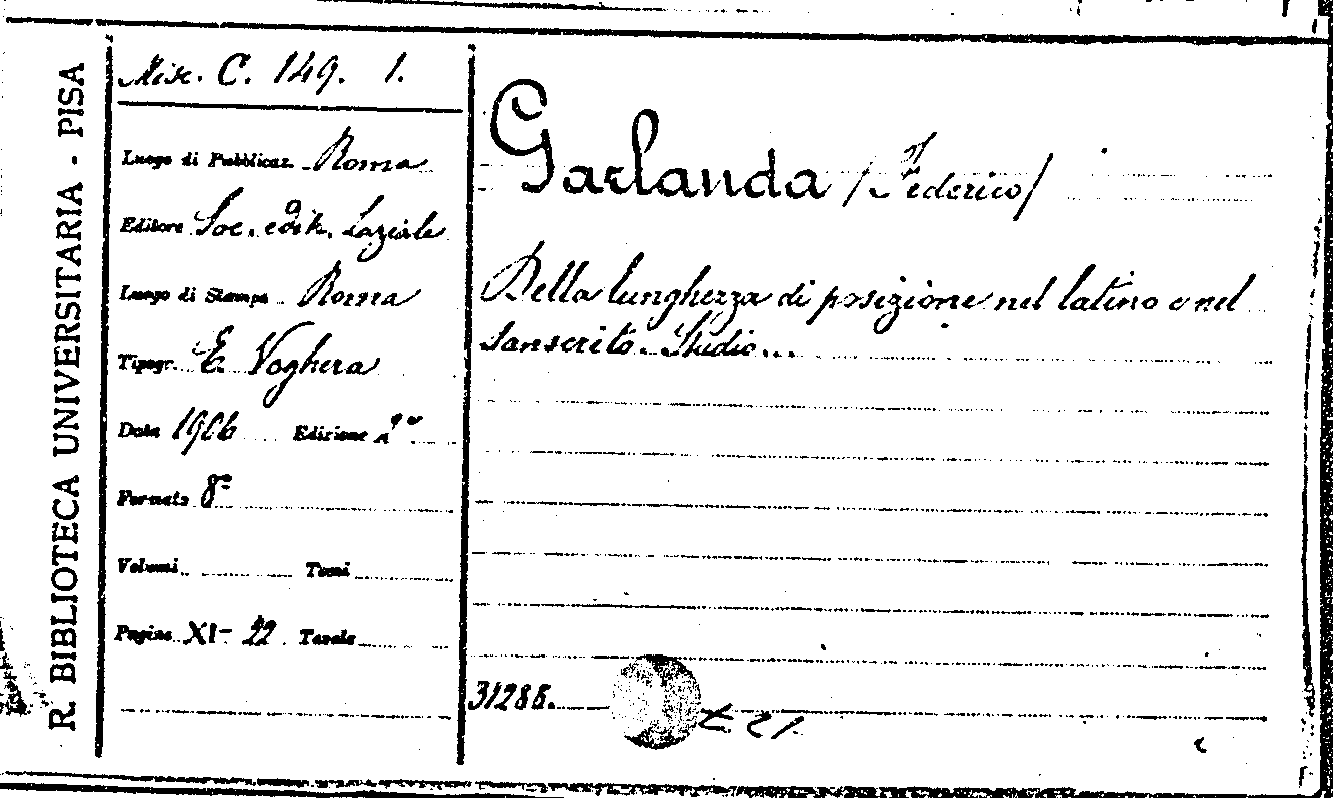 R. BIBLIOTECA UNIVERSITARIA - PISA
Misc. C. 149. 1.
Luogo di Pubblicaz. Roma
Editore Soc. edit. Laziale
Luogo di Stampa Roma
Tipogr. E. Voghera
Data 1906 Edizione 2ª
Formato 8°
Volumi Tomi
Pagine XI-22 Tavole
Garlanda /Federico/
Della lunghezza di posizione nel latino e nel
sanscrito. Studio...
31288.